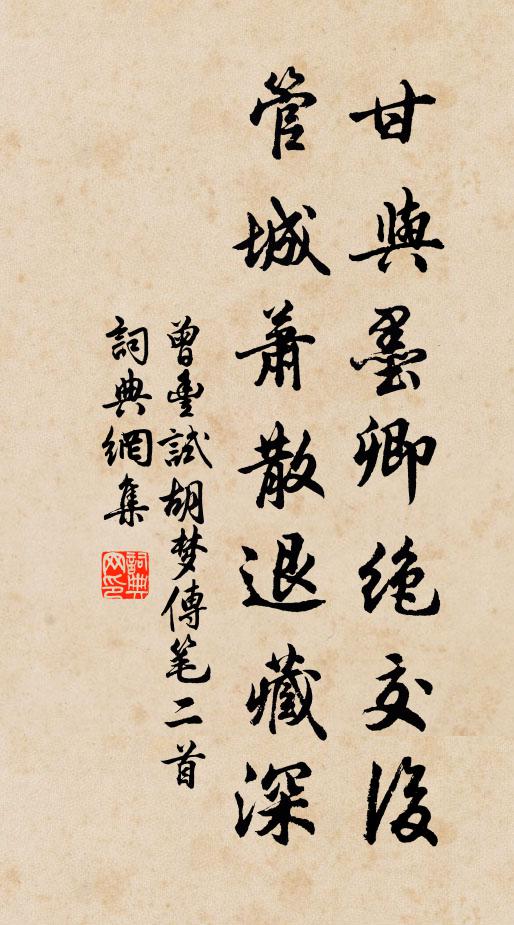 甘與墨卿絶交後
管城蕭散退藏深
曾豊試胡梦傳笔二首
詞典網集
詞典网印